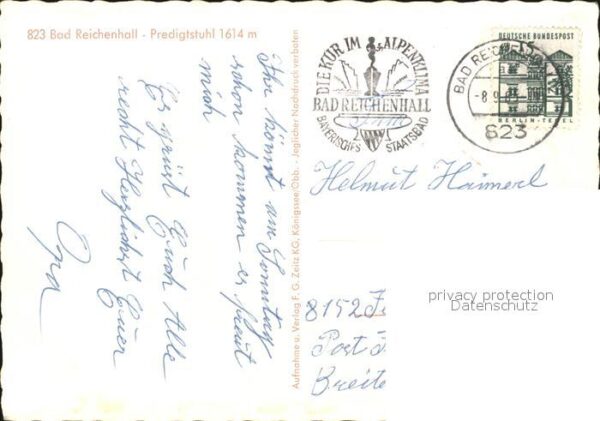 823 Bad Reichenhall - Predigtstuhl 1614 m
Ihr könnt am Sonntag
schon kommen es freut
mich
Es grüst Euch Alle
recht Herzlichst Euer
Opa
Aufnahme u. Verlag F. G. Zeitz KG, Königssee/Obb. - Jeglicher Nachdruck verboten
DIE KUR IM ALPENKLIMA
BAD REICHENHALL
BAYERISCHES STAATSBAD
BAD REICHENHALL
-8.9.
823
DEUTSCHE BUNDESPOST
15
BERLIN-TEGEL
Helmut Haimerl
8152
Post
Breite
privacy protection
Datenschutz